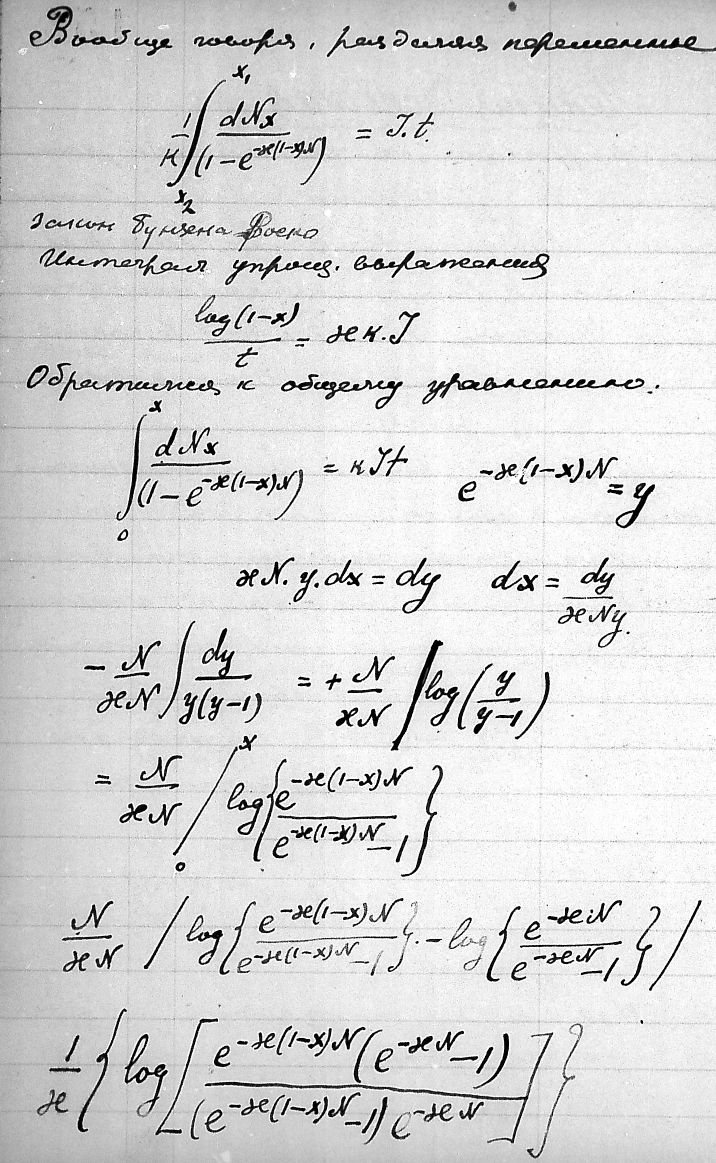 Вообще говоря, разделяя переменные
1/к ∫_{x₂}^{x₁} dNx / (1 − e^{−ϰ(1−x)N}) = J.t.
Закон Бунзена Роско
Интеграл упрощ. выражения
log(1−x) / t = ϰк.J
Обратимся к общему уравнению.
∫_0^x dNx / (1 − e^{−ϰ(1−x)N}) = кJt e^{−ϰ(1−x)N} = y
ϰN.y.dx = dy dx = dy / ϰNy.
− N/ϰN ∫ dy / y(y−1) = + N/ϰN / log(y / y−1)
= N/ϰN /_0^x log{e^{−ϰ(1−x)N} / e^{−ϰ(1−x)N} − 1}
N/ϰN / log{e^{−ϰ(1−x)N} / e^{−ϰ(1−x)N} − 1}. − log{e^{−ϰN} / e^{−ϰN} − 1} /
1/ϰ {log[e^{−ϰ(1−x)N}(e^{−ϰN} − 1) / (e^{−ϰ(1−x)N} − 1) e^{−ϰN}]}